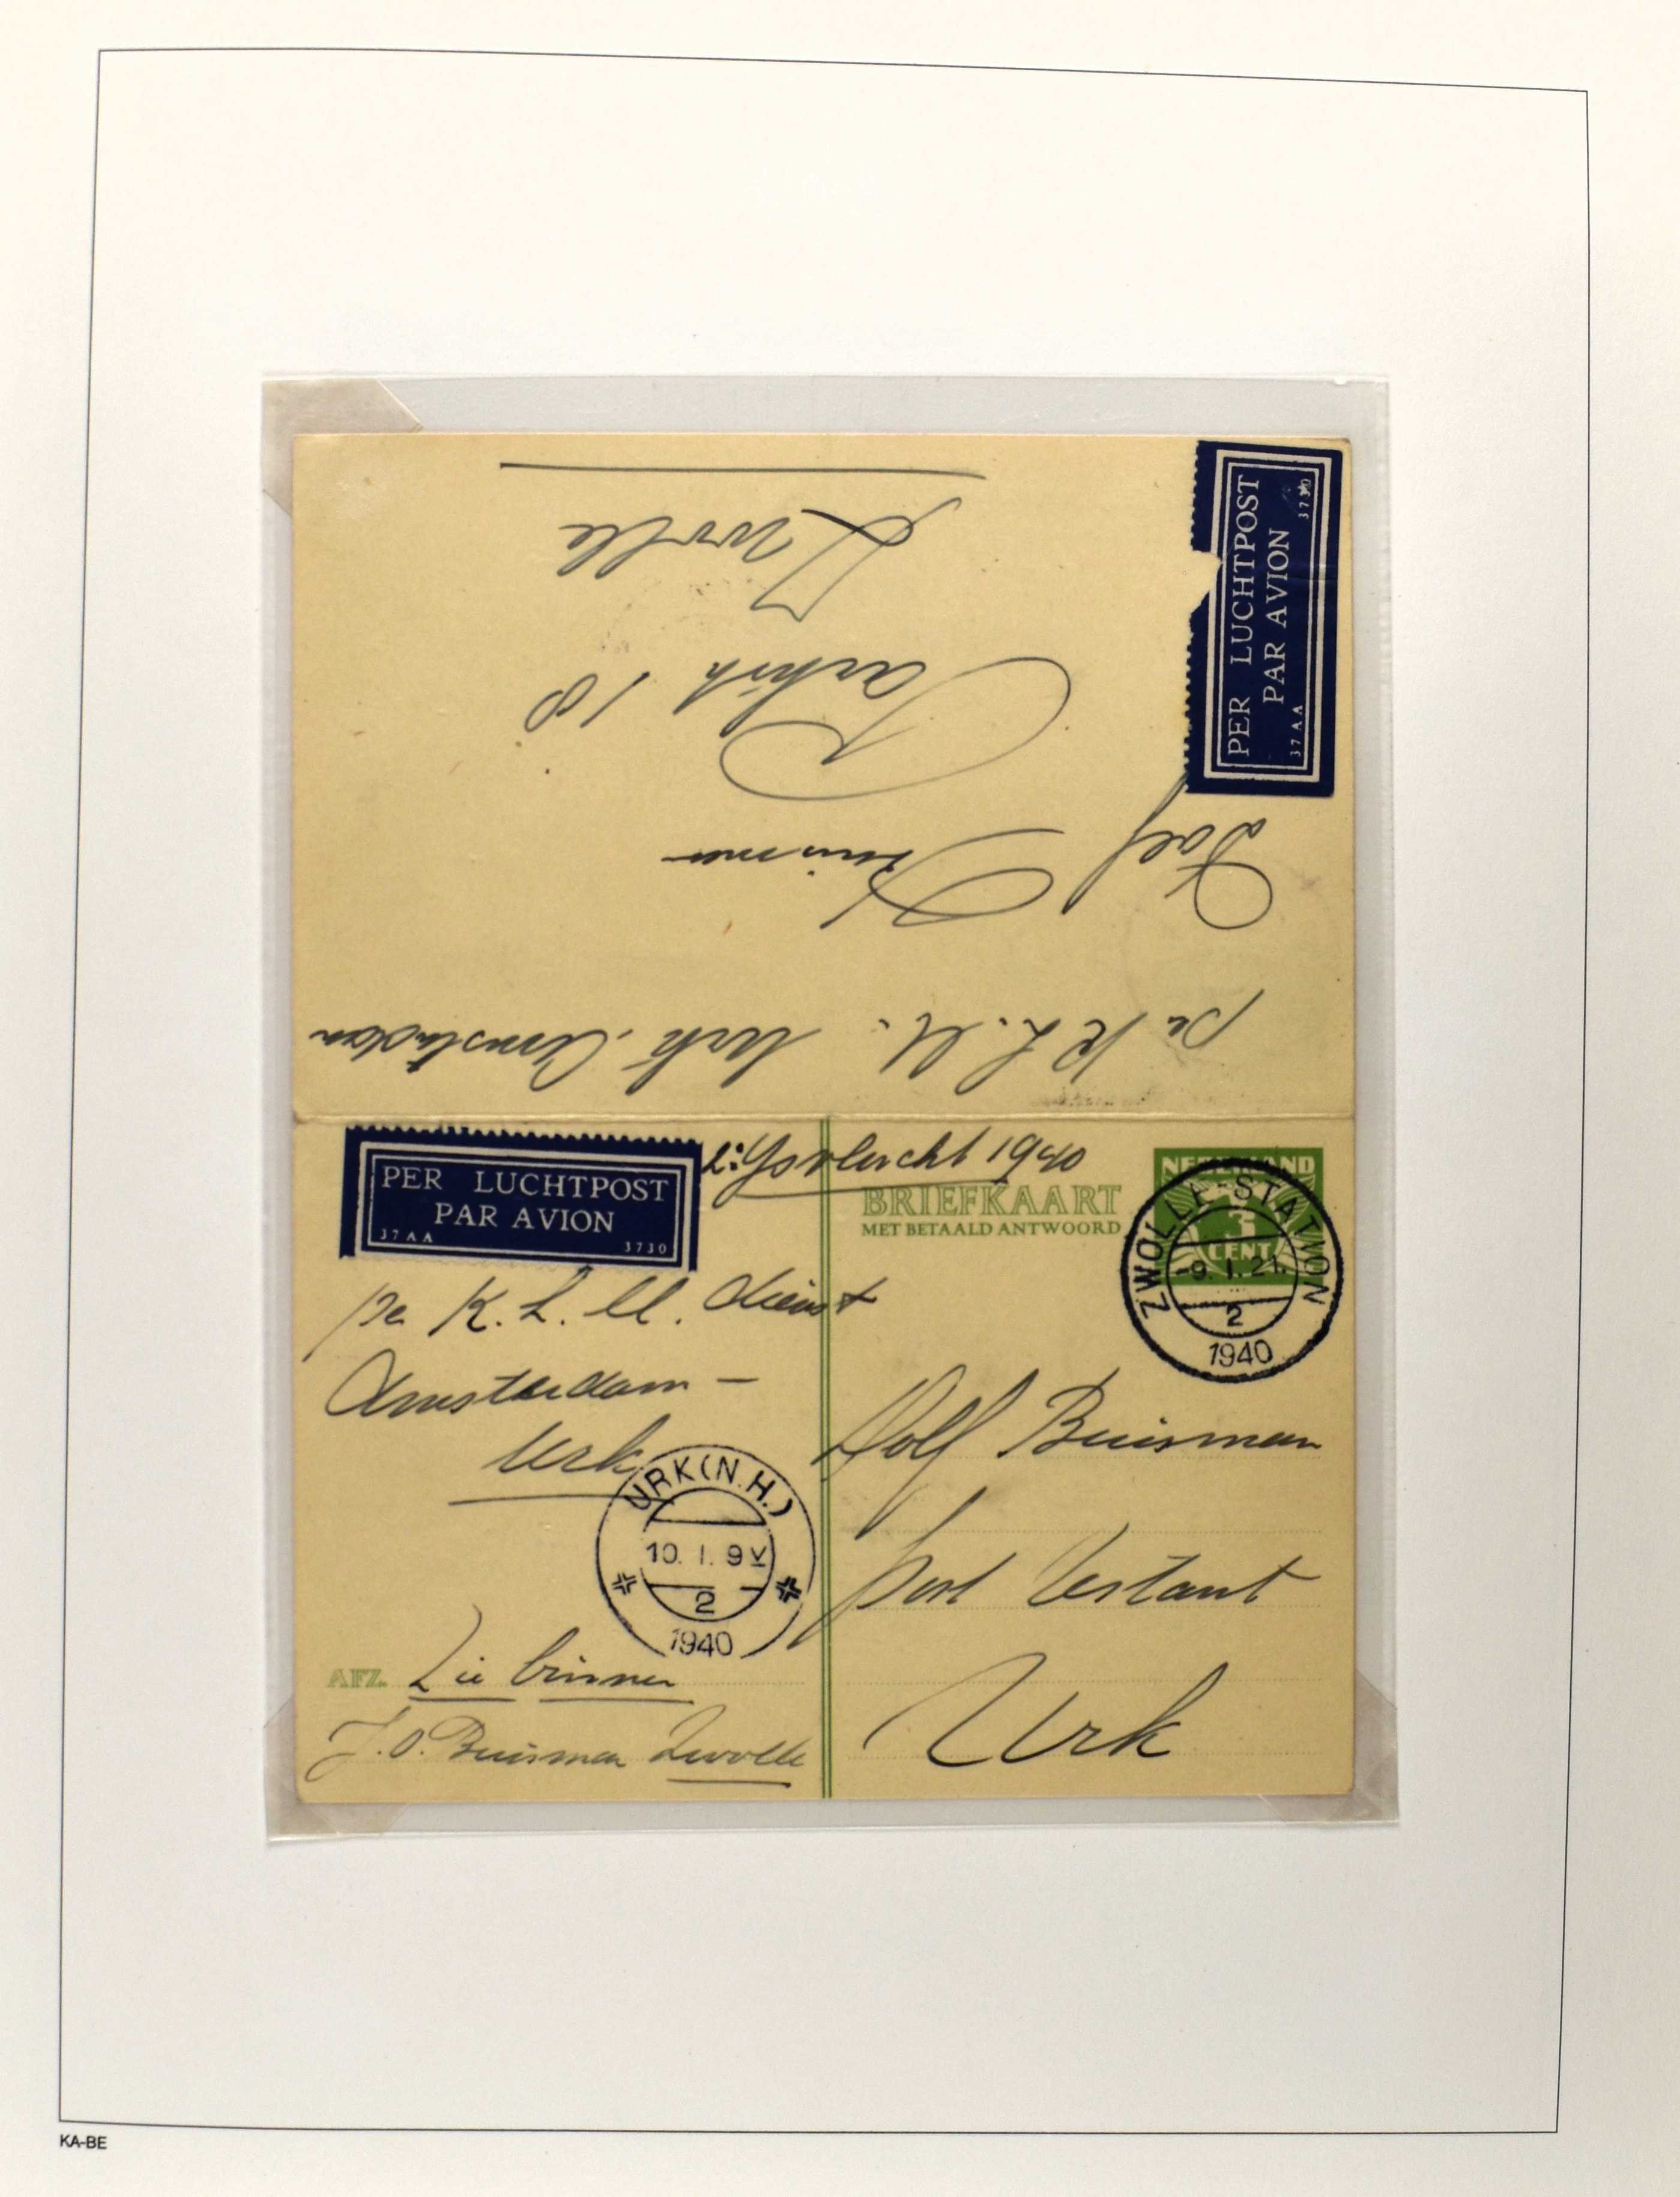 PER LUCHTPOST
PAR AVION
37 AA 3730
Zwolle
18
Dolf Buisman
per K.L.M. Urk. Amsterdam
PER LUCHTPOST
PAR AVION
37 AA 3730
2e Ysvlucht 1940
BRIEFKAART
MET BETAALD ANTWOORD
NEDERLAND
3
CENT
ZWOLLE-STATION
-9. 1. 21.
2
1940
per K.L.M. dienst
Amsterdam -
Urk
URK (N.H.)
10. 1. 9 V
2
1940
Dolf Buisman
post restant
Urk
AFZ. Zie binnen
J.O. Buisman Zwolle
KA-BE